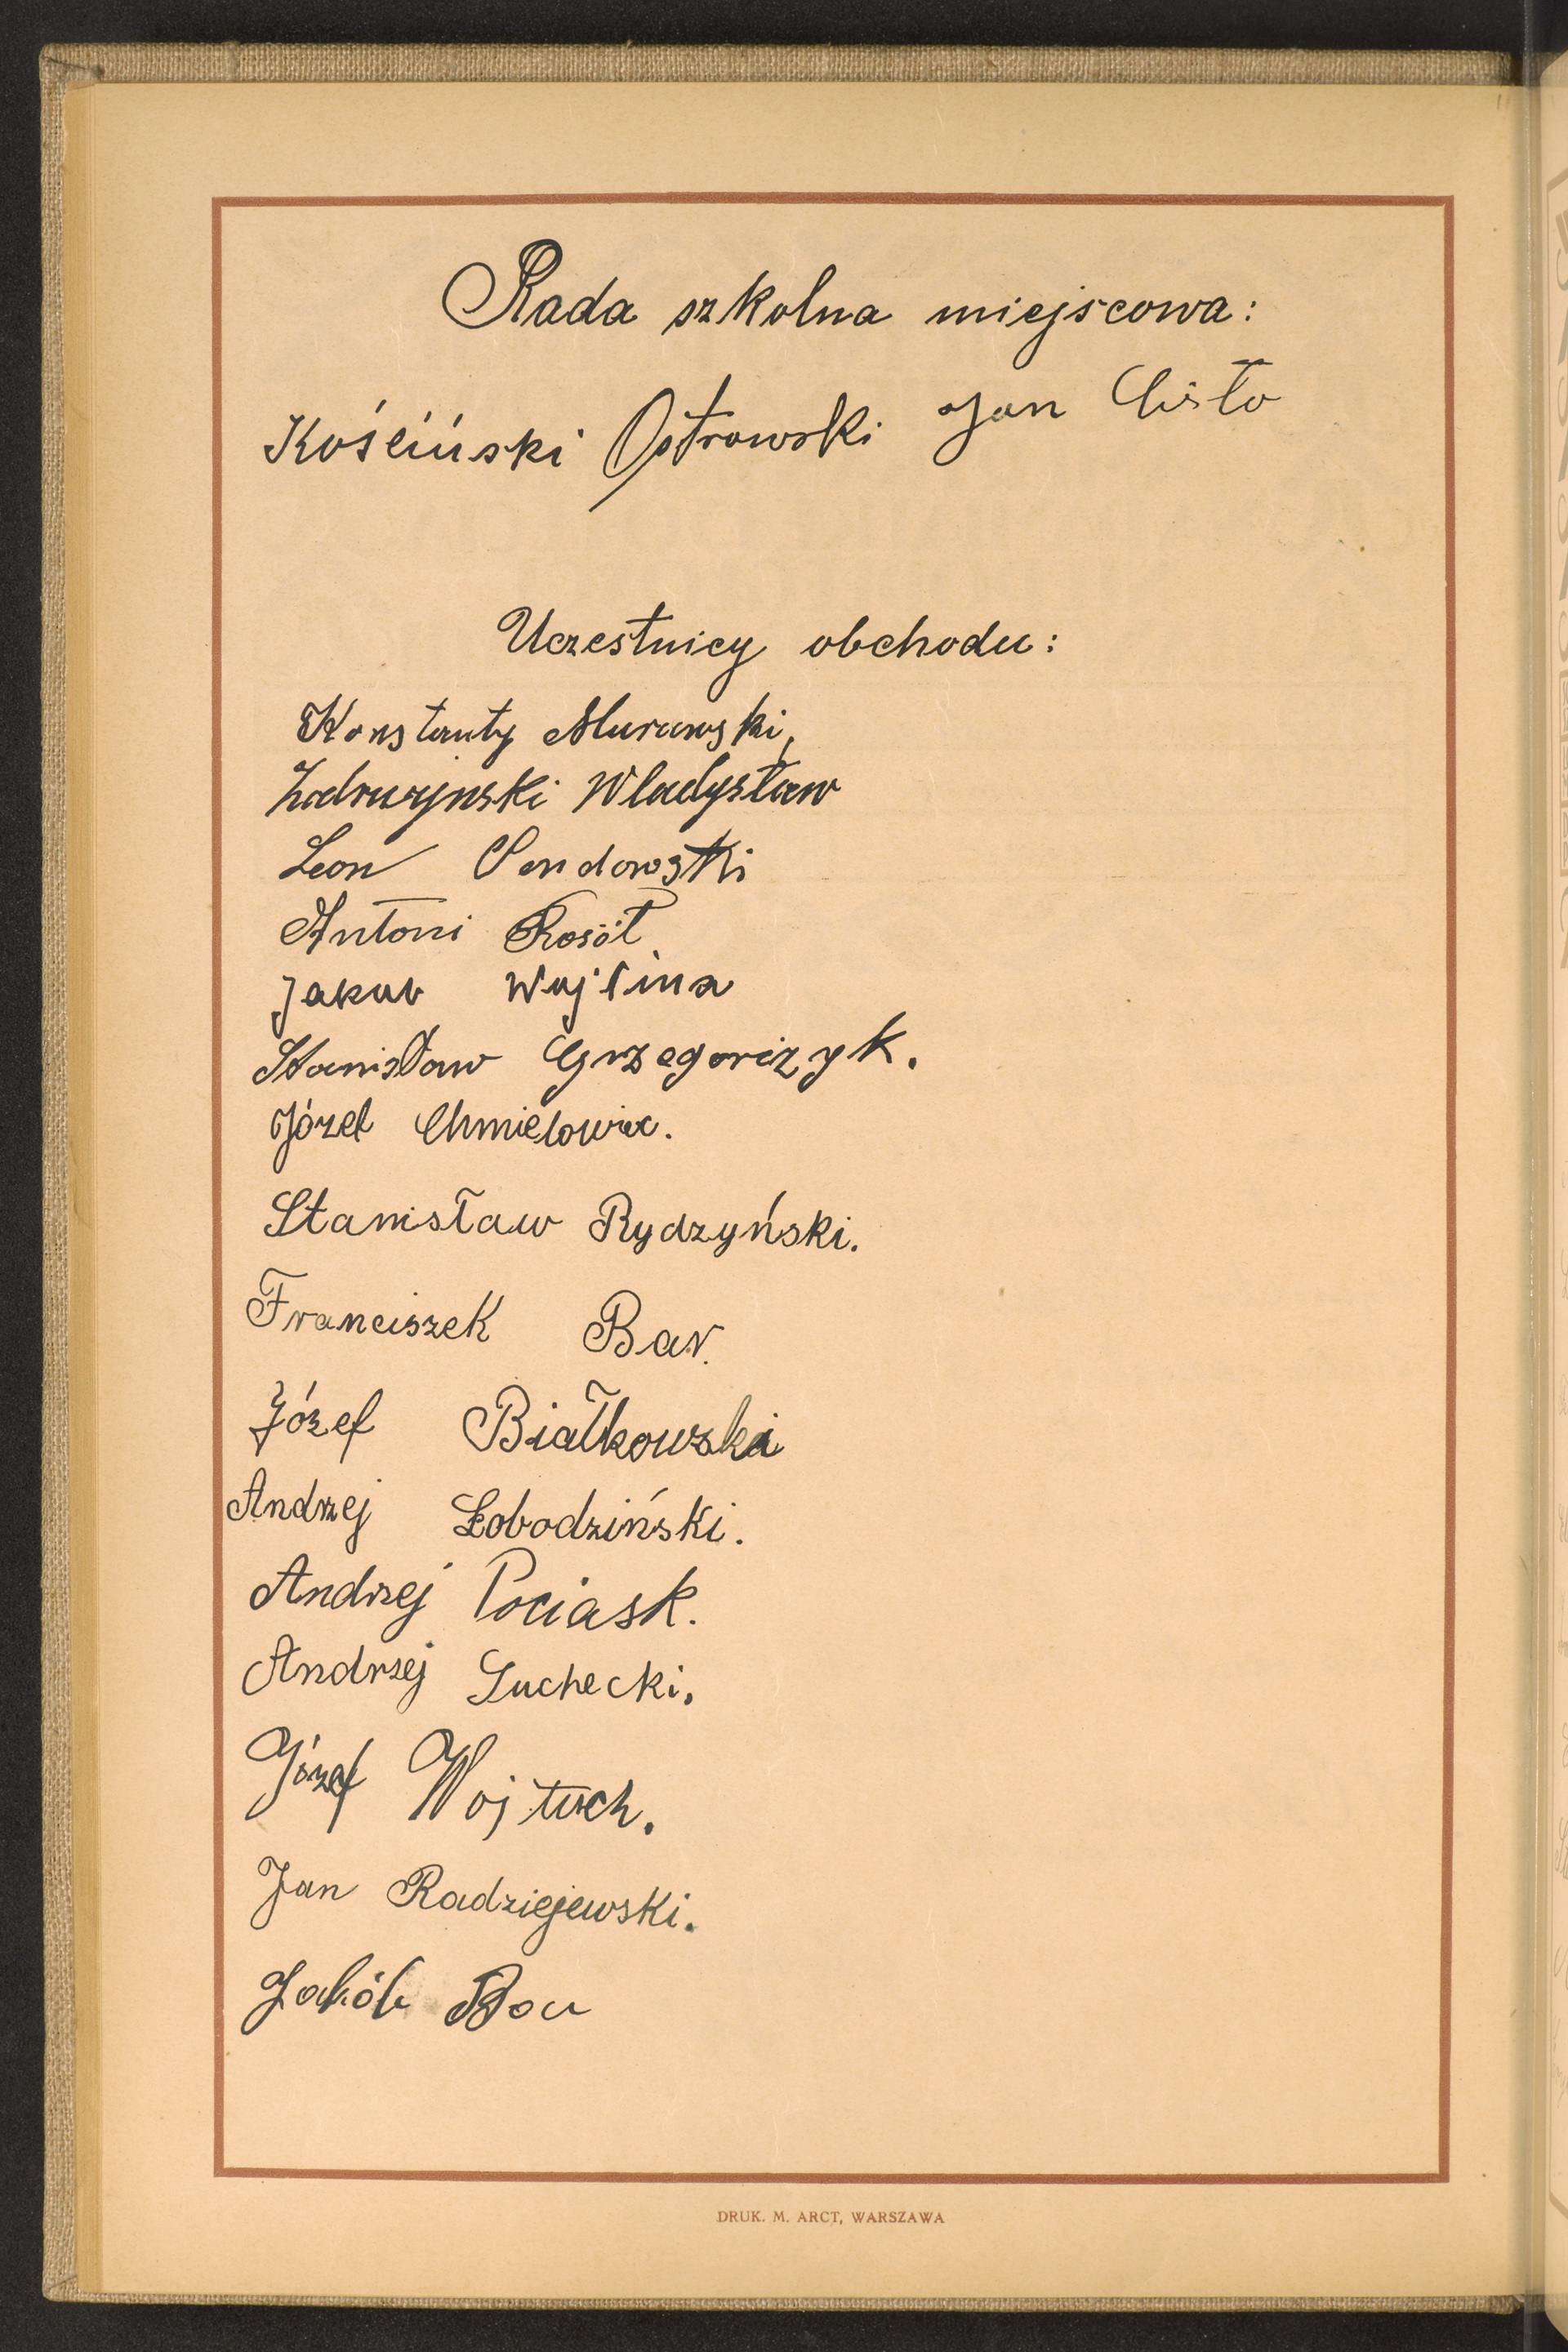 Rada szkolna miejscowa:
Kośćiński Ostrowski Jan Cisło
Uczestnicy obchodu:
Konstanty Murawski,
Władysław
Leon Sendowski
Antoni Rosół
Jakub
Stanisław Grzegorczyk.
Józef Chmielowiec.
Stanisław Rydzyński.
Franciszek Bar.
Józef Białkowski
Andrzej Łobodziński.
Andrzej Pociask.
Andrzej Suchecki.
Józef Wojtuch.
Jan Radziejewski.
Jakób
DRUK. M. ARCT, WARSZAWA